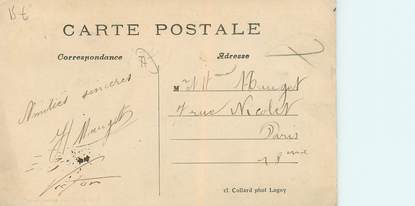 15 €
CARTE POSTALE
Correspondance
Adresse
Amitiés sincères
M Mauget
7 rue Nicolet
Paris
18eme
cl. Collard phot Lagny